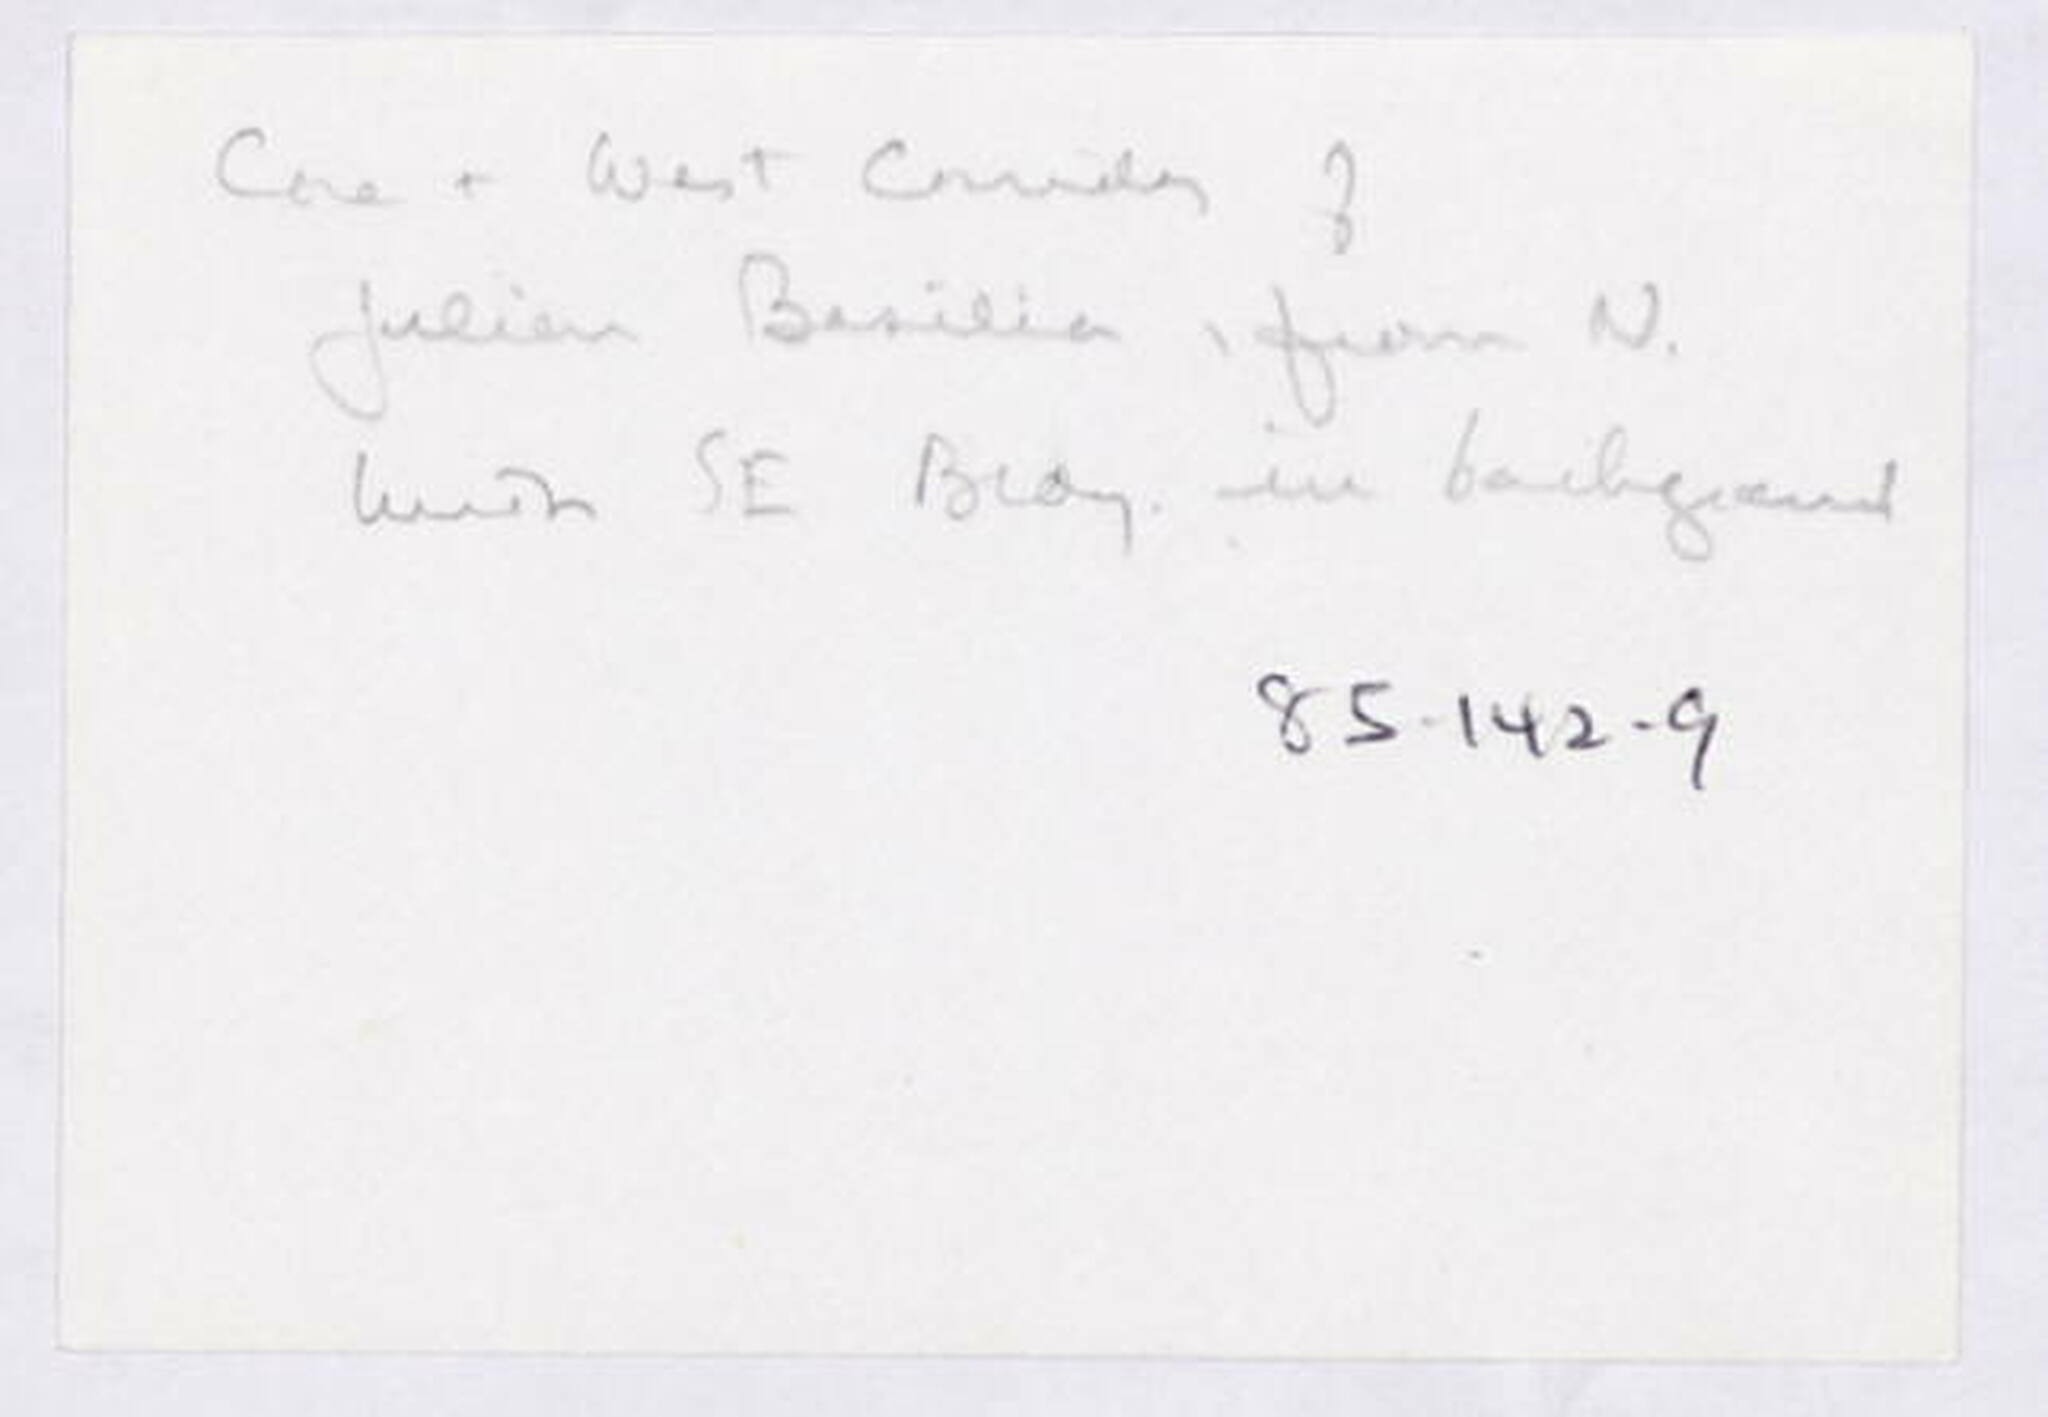 Core + West Corridor of
Julian Basilica, from N.
with SE Bldg. in background
85-142-9